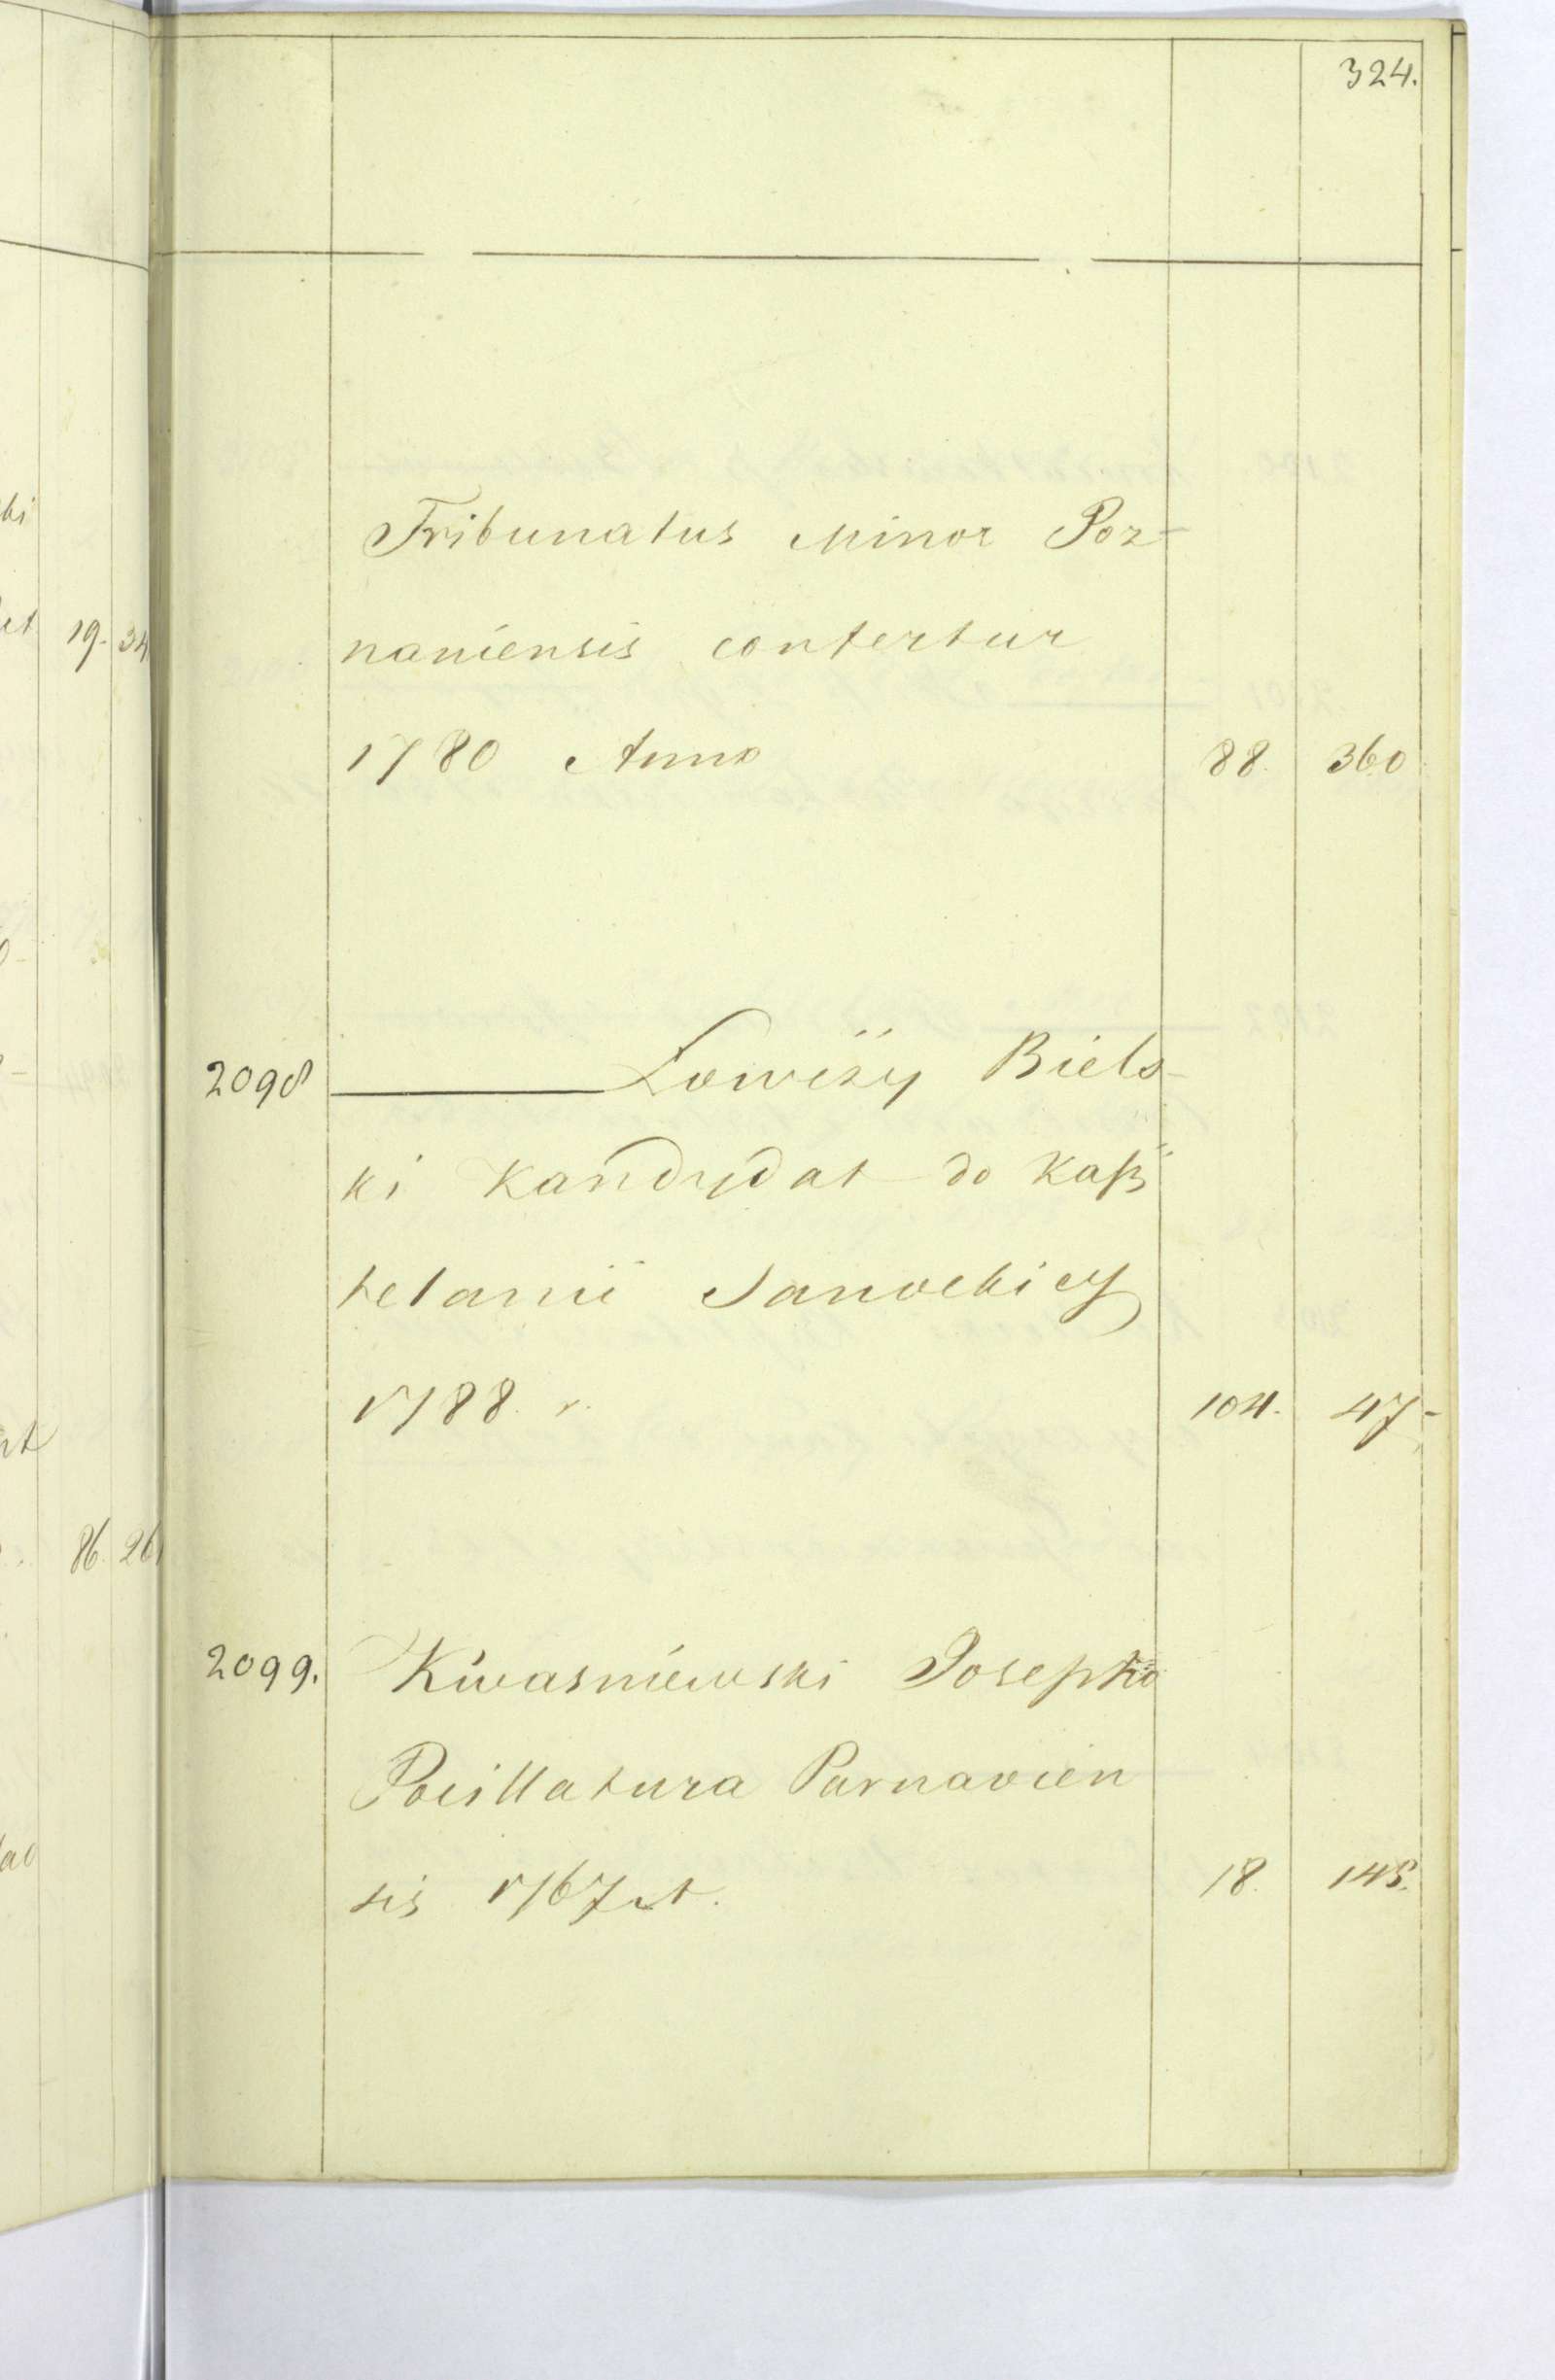 324.
Tribunatus Minor Poz-
naniensis confertur
1780 Anno 88. 360
2098 Łowczy Biels-
ki Kandydat do Kasz
telanii Sanockiey
1788. r. 104. 47-
2099. Kwasniewski Josepho
Pocillatura Parnavien
sis 1767 at. 18. 145.
19. 34
86. 26